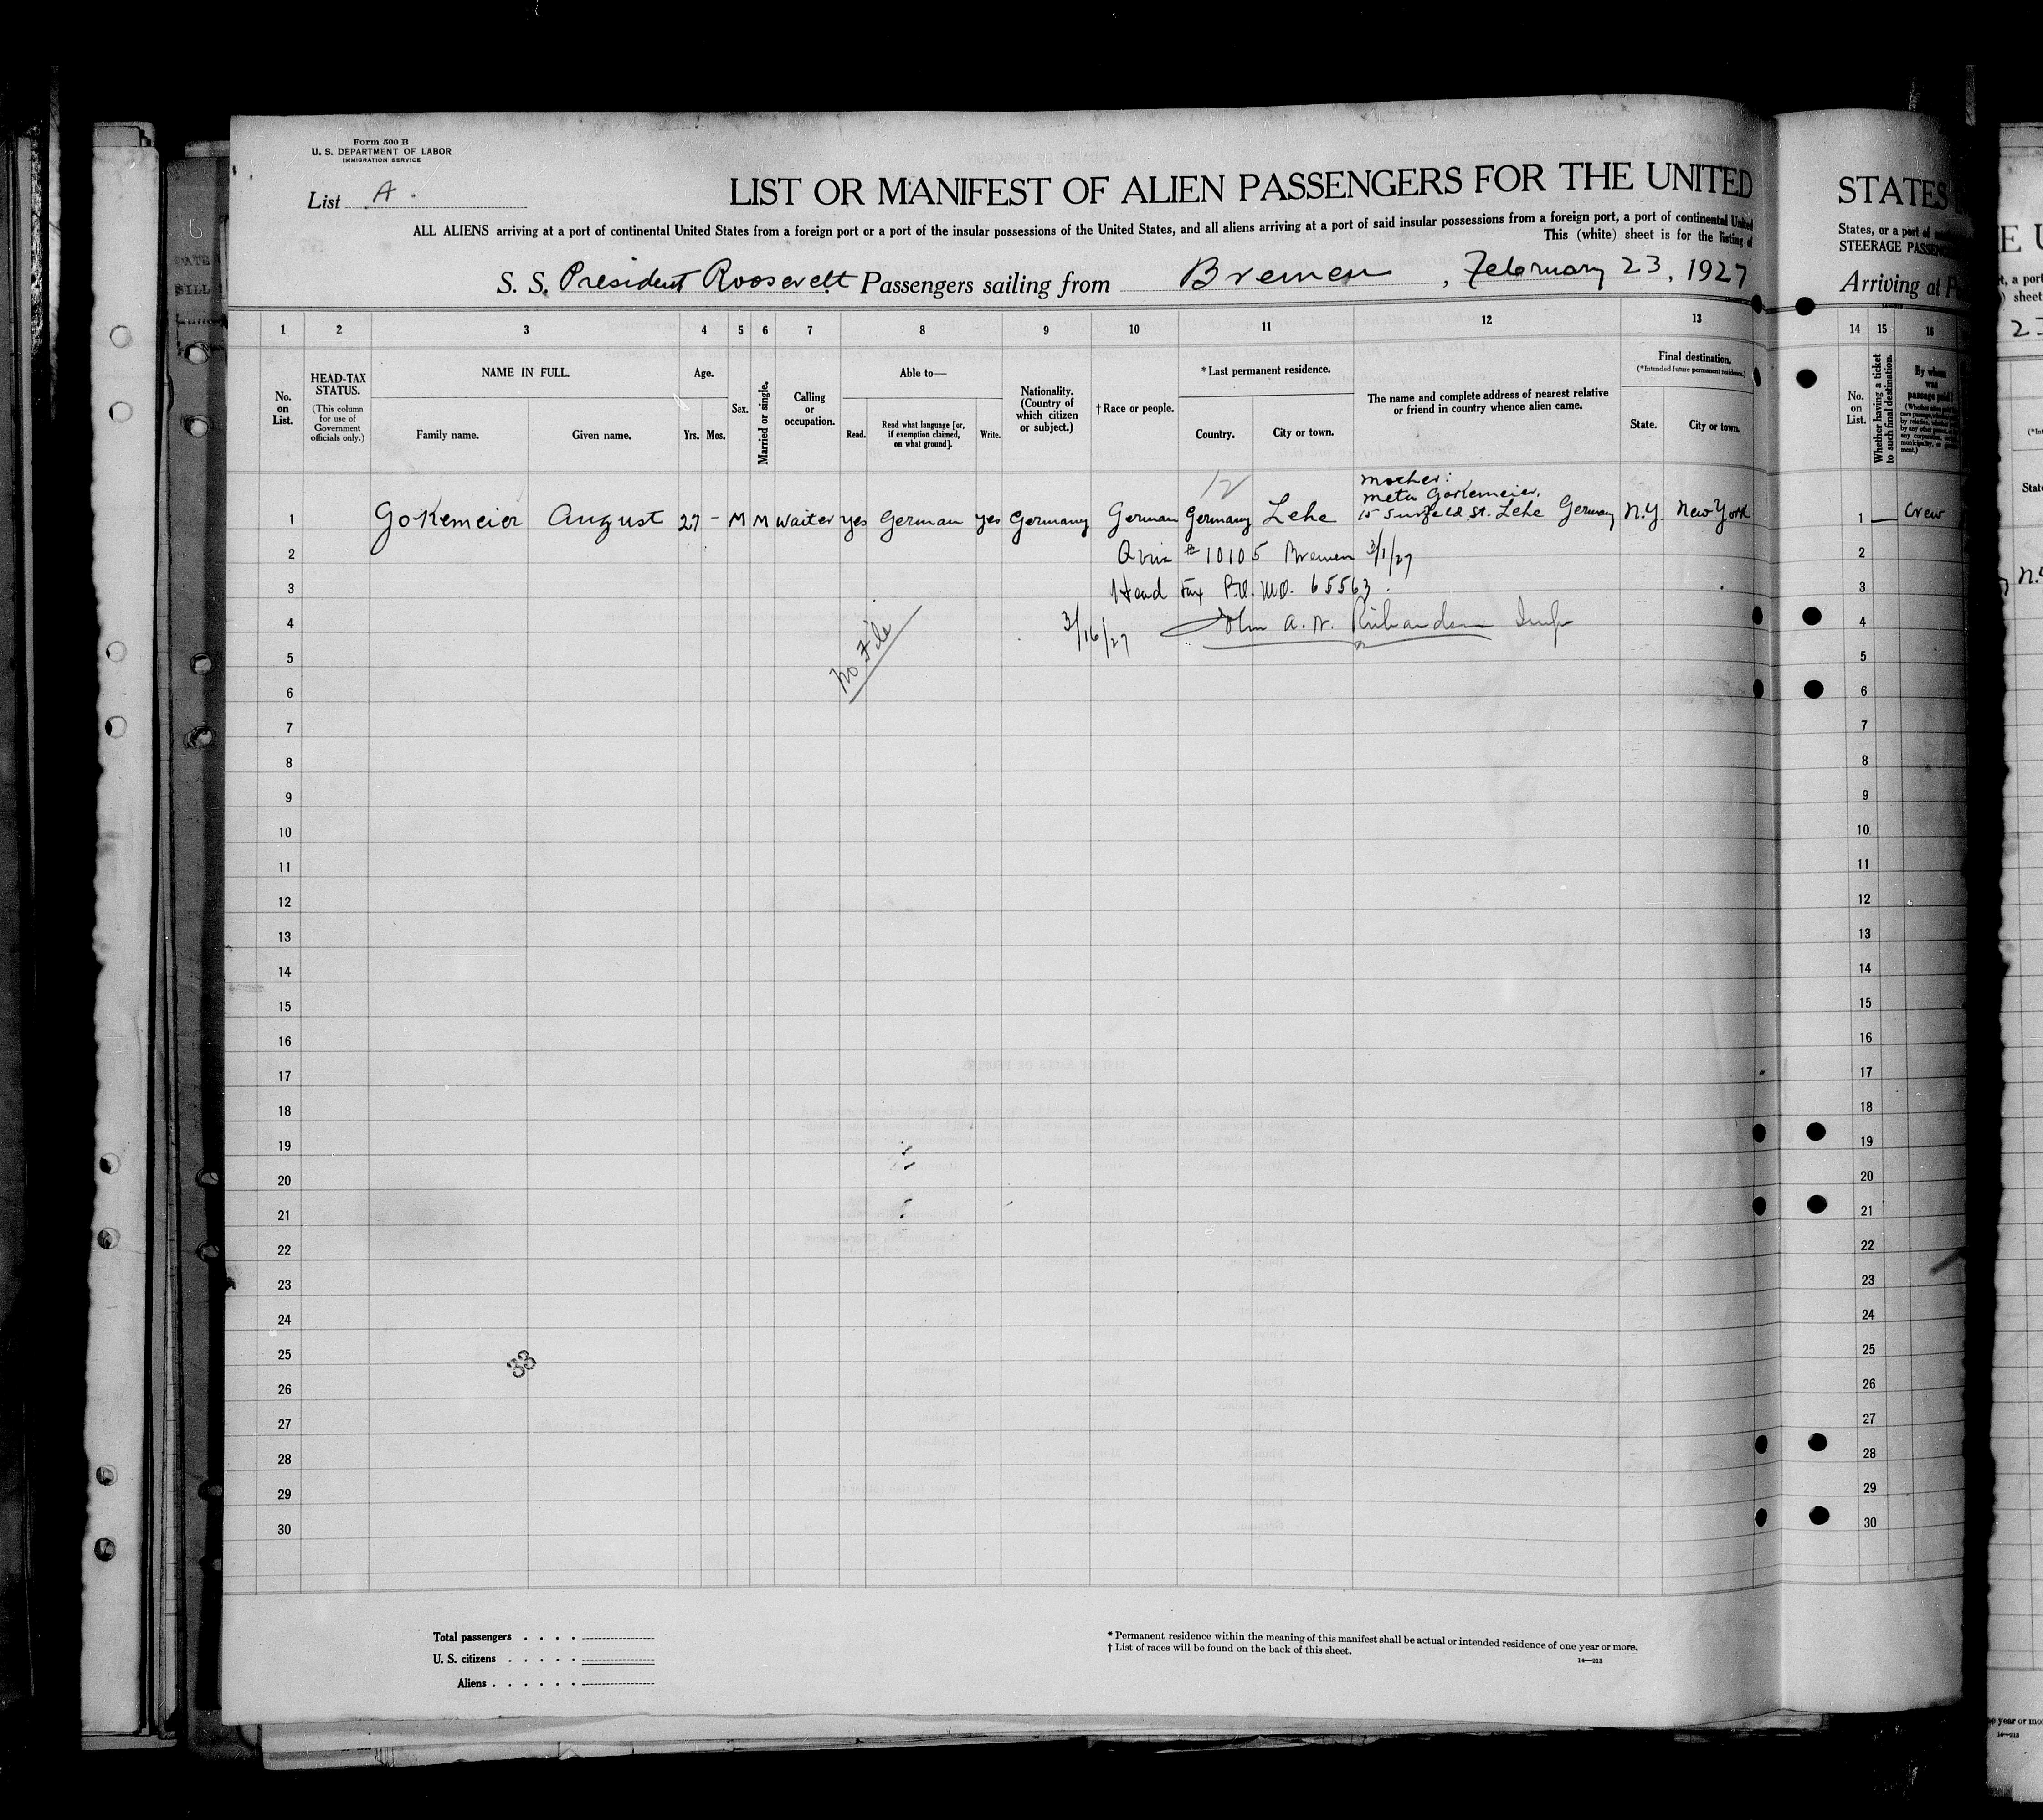 Form 500 B
U. S. DEPARTMENT OF LABOR
IMMIGRATION SERVICE
List A.
LIST OR MANIFEST OF ALIEN PASSENGERS FOR THE UNITED
STATES
ALL ALIENS arriving at a port of continental United States from a foreign port or a port of the insular possessions of the United States, and all aliens arriving at a port of said insular possessions from a foreign port, a port of continental United
States, or a port of
This (white) sheet is for the listing of
STEERAGE
S. S. President Roosevelt Passengers sailing from Bremen, February 23, 1927
Arriving at
1 2 3 4 5 6 7 8 9 10 11 12 13 14 15 16
No. on List.
HEAD-TAX STATUS.
(This column for use of Government officials only.)
NAME IN FULL.
Family name. Given name.
Age.
Yrs. Mos.
Sex.
Married or single.
Calling or occupation.
Able to—
Read. Read what language [or, if exemption claimed, on what ground]. Write.
Nationality. (Country of which citizen or subject.)
† Race or people.
*Last permanent residence.
Country. City or town.
The name and complete address of nearest relative or friend in country whence alien came.
Final destination.
(*Intended future permanent residence.)
State. City or town.
No. on List.
Whether having a ticket to such final destination.
By whom was passage paid?
12
mother:
1 Gokemeier August 27 - M M waiter yes German yes Germany German Germany Lehe Meta Gokemeier, 15 St. Lehe Germany N.Y. New York 1 — Crew
2 # 10105 Bremen 3/1/27 2
3 Head Tax Pd. 65563. 3
4 3/16/27 John A. W. Richardson Insp 4
No File
5 5
6 6
7 7
8 8
9 9
10 10
11 11
12 12
13 13
14 14
15 15
16 16
17 17
18 18
19 19
20 20
21 21
22 22
23 23
24 24
25 33 25
26 26
27 27
28 28
29 29
30 30
Total passengers . . . .
U. S. citizens . . . . .
Aliens . . . . . .
* Permanent residence within the meaning of this manifest shall be actual or intended residence of one year or more.
† List of races will be found on the back of this sheet.
14—213